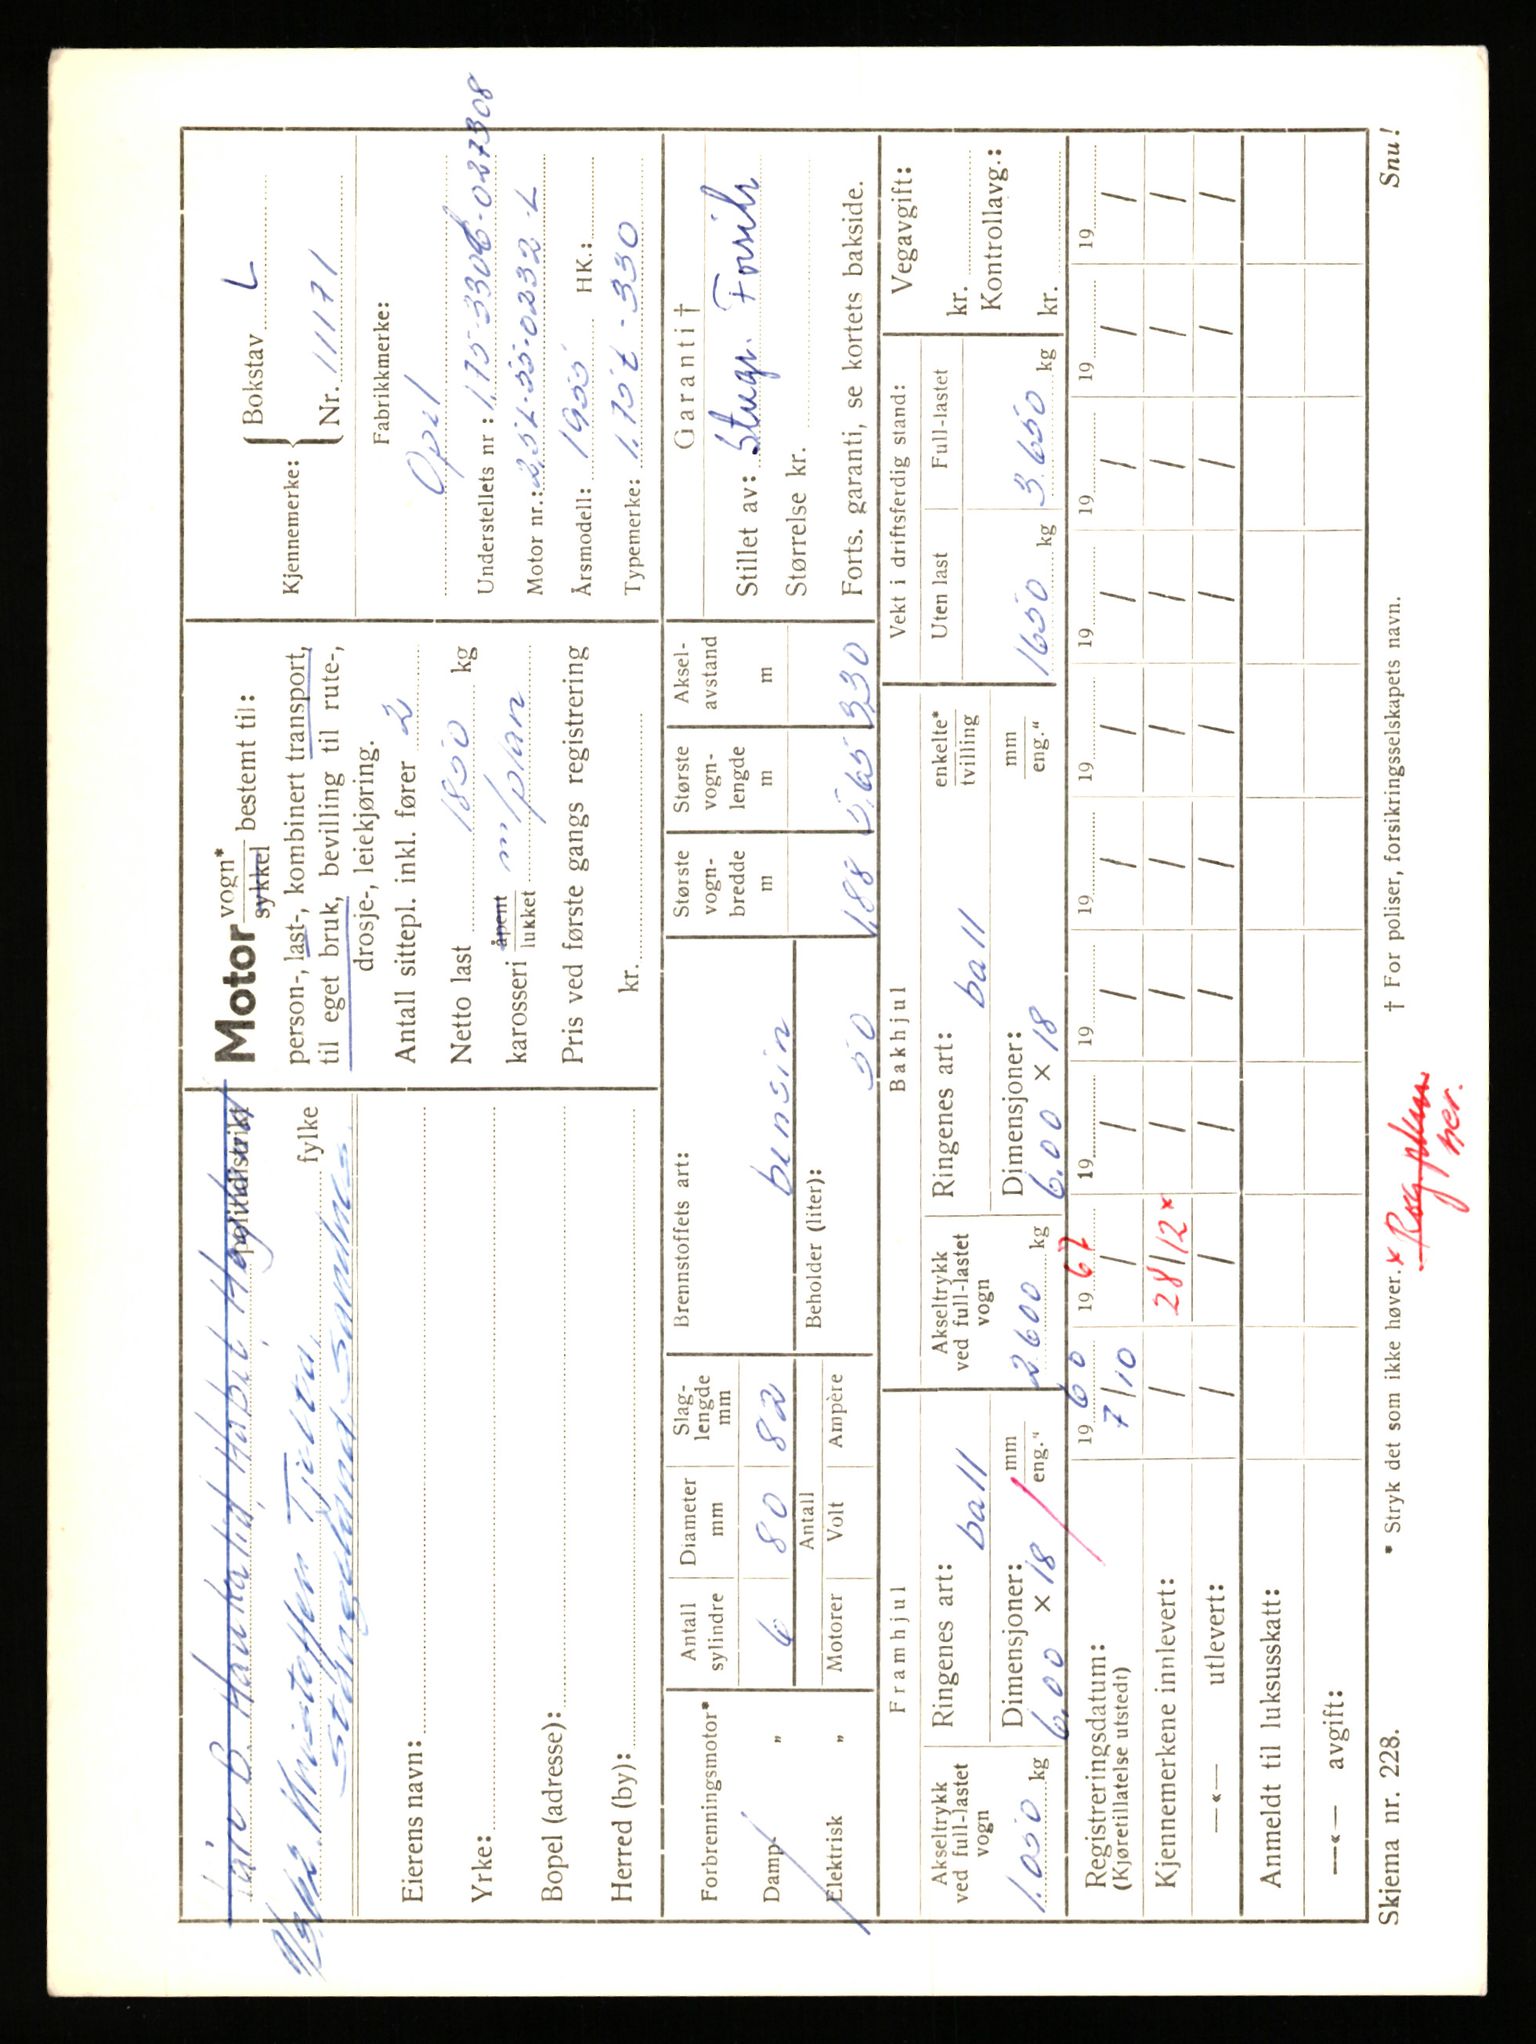 Motor vogn* sykkel bestemt til:
person-, last-, kombinert transport,
til eget bruk, bevilling til rute-,
drosje-, leiekjøring.
Antall sittepl. inkl. fører 2
Netto last 1850 kg
karosseri åpent lukket m/plan
Pris ved første gangs registrering
kr.
Kjennemerke: Bokstav L
Nr. 11171
Fabrikkmerke:
Opel
Understellets nr:
Motor nr.:
Årsmodell: 1955 HK.:
Typemerke: 1,75t-330
politidistrikt
fylke
Stangeland, Sandnes
Eierens navn:
Yrke:
Bopel (adresse):
Herred (by):
Forbrenningsmotor*
Damp „
Elektrisk „
Antall sylindre 6
Diameter mm 80
Slag- lengde mm 82
Motorer Antall Volt Ampère
Brennstoffets art: bensin
Beholder (liter): 50
Største vogn- bredde m 1,88
Største vogn- lengde m 5,65
Aksel- avstand m 3,30
Garanti †
Stillet av:
Størrelse kr.
Forts. garanti, se kortets bakside.
Framhjul
Akseltrykk ved full-lastet vogn 1.050 kg
Ringenes art: ball
Dimensjoner: mm eng."
6.00 x 18
Bakhjul
Akseltrykk ved full-lastet vogn 2600 kg
Ringenes art: ball enkelte* tvilling
Dimensjoner: mm eng."
6.00 x 18
Vekt i driftsferdig stand:
Uten last 1650 kg
Full-lastet 3650 kg
Vegavgift:
kr.
Kontrollavg.:
kr.
Registreringsdatum: 19 60 19 67 19 19 19 19 19 19 19 19
(Kjøretillatelse utstedt) 7/10 / / / / / / / / /
Kjennemerkene innlevert: / 28/12* / / / / / / / /
—«— utlevert: / / / / / / / / / /
Anmeldt til luksusskatt:
—«— avgift:
Skjema nr. 228.
* Stryk det som ikke høver.
† For poliser, forsikringsselskapets navn.
Snu!